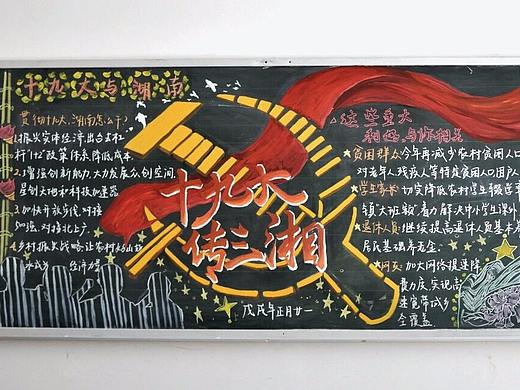 十九大与湖南
贯彻十九大,湖南怎么干?
1.振兴实体经济,出台
行门槛政策体系,降低成本.
2.增强创新能力,大力发展众创空间
星创天地和科技加速器
3.加快开放步伐,对接
4.乡村振兴战略让乡村
十九大
传三湘
戊戌年正月廿一
这些重大
利好,与你相关
★贫困群众:今年再减少农村贫困人口
对老年人、残疾人等弱贫困人口
★学生家长:切实降低农村学生辍学率
镇“大班额”,着力解决中小学生课外
★退休人员:继续提高退休人员基本养
居民基础养老金.
★网友:加大网络提速降
费力度,实现高
速宽带城乡
全覆盖.